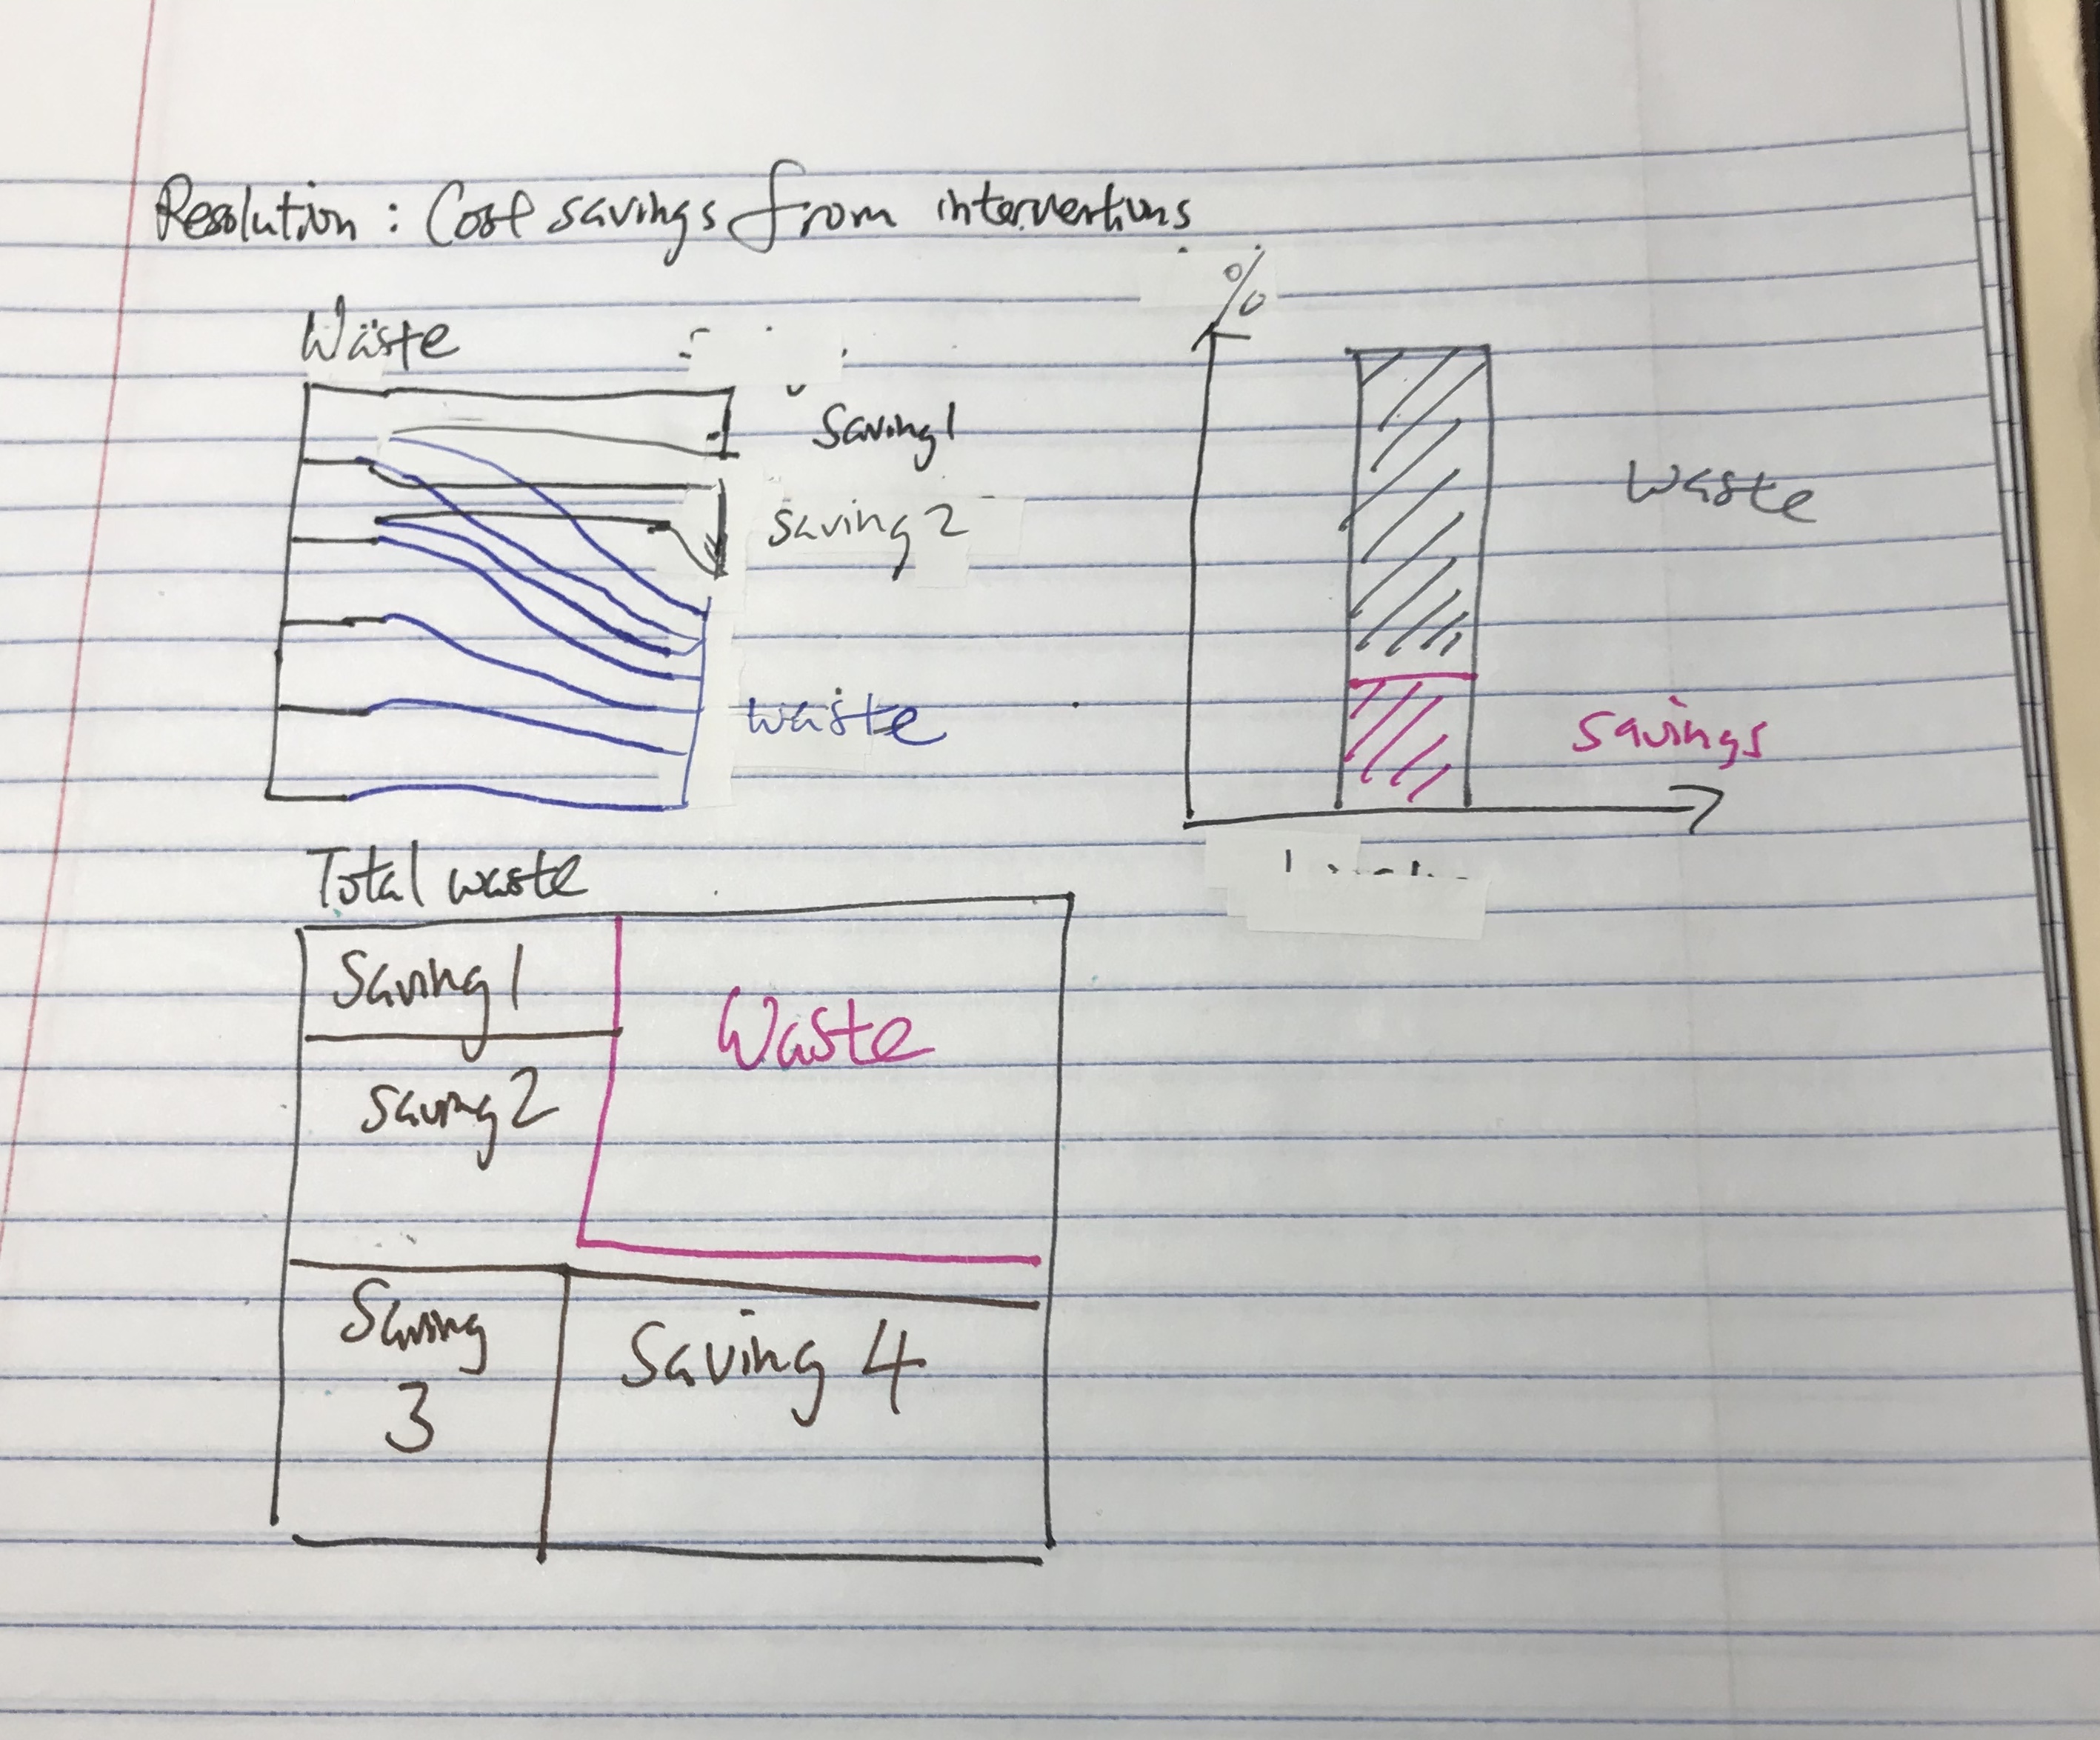 Resolution : Cost savings from interventions
%
Waste
Saving 1
Saving 2
Waste
Waste
Savings
Total waste
Saving 1
Waste
Saving 2
Saving
3
Saving 4